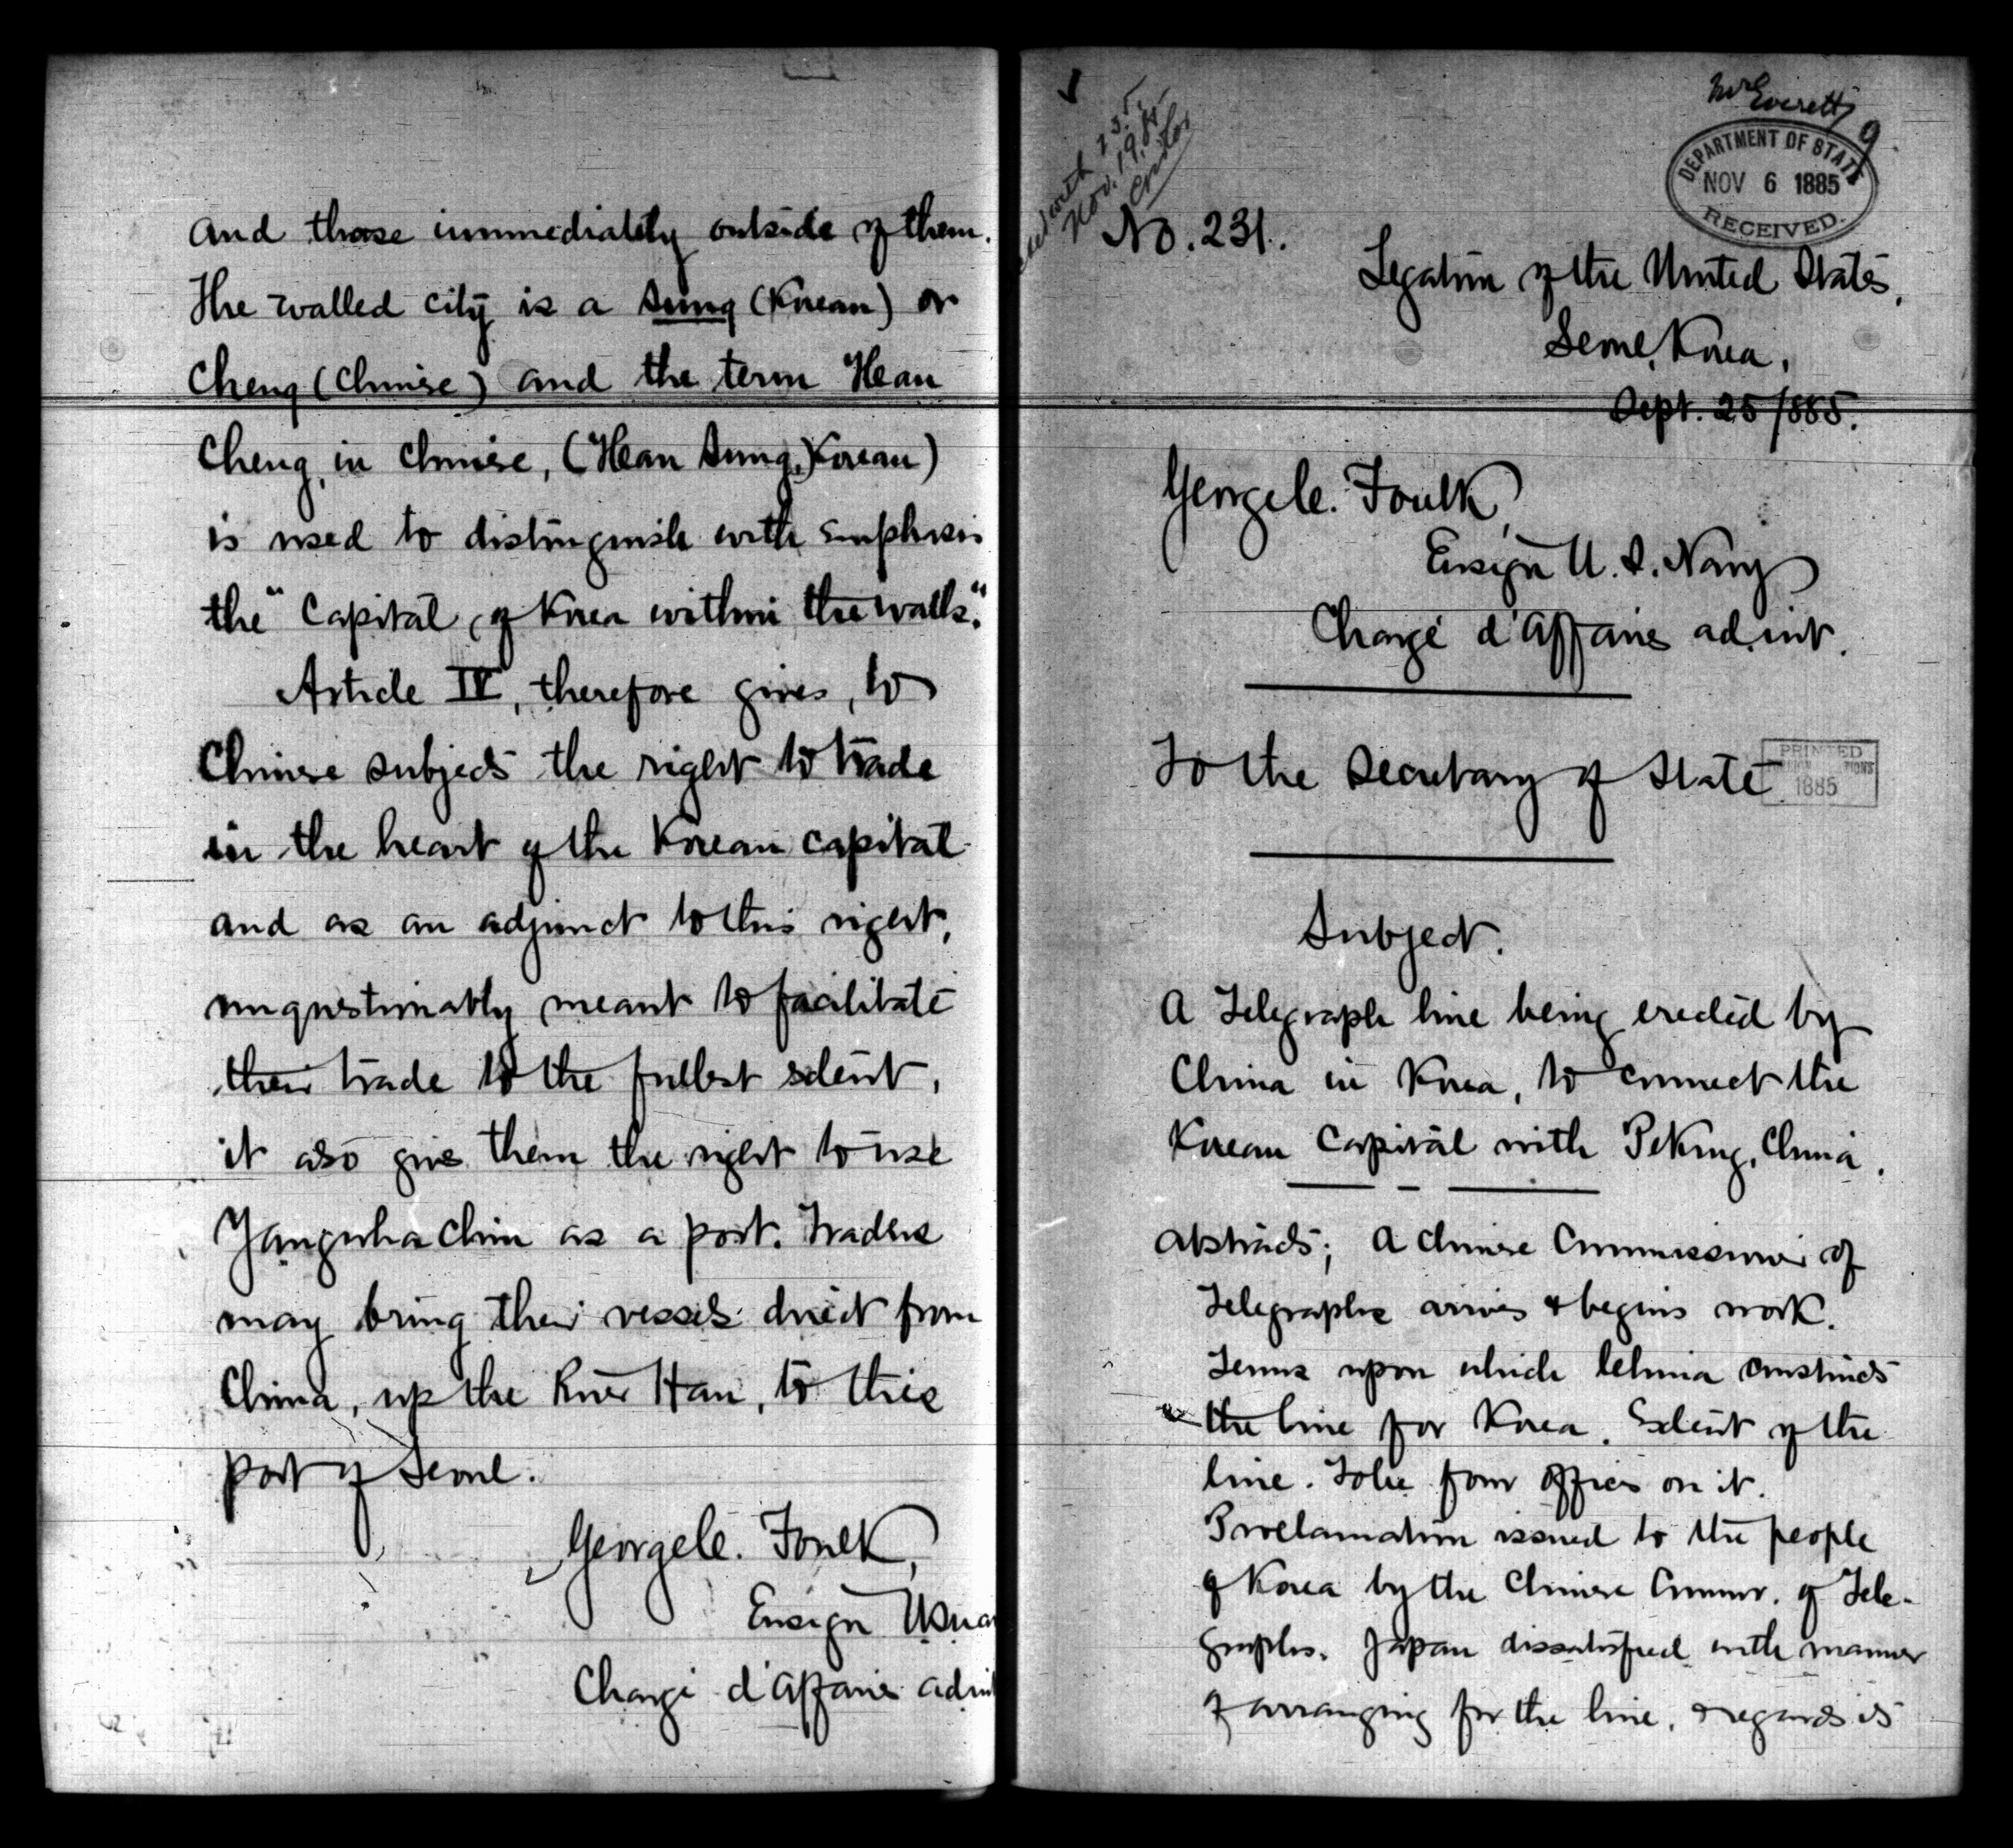 and those immediately outside of them.
The walled city is a Sung (Korean) or
Cheng (Chinise) and the term Hean
Cheng, in Chinise, (Hean Sung, Korean)
is used to distinguish with emphasis
the "Capital of Korea within the walls."
Article IV, therefore gives, to
Chinese subjects the right to trade
in the heart of the Korean capital
and as an adjunct to this right,
unquestionably meant to facilitate
their trade to the fullest extent,
it also gives them the right to use
Yanghwa Chin as a port. Traders
may bring their vessels direct from
China, up the River Han, to this
port of Seoul.
George C. Foulk,
Ensign USNa
Chargé d'Affaires ad int
Mr Everett
9
DEPARTMENT OF STATE
NOV 6 1885
RECEIVED.
with 235,
Nov. 19. 85
No. 231.
Legation of the United States,
Seoul, Korea,
Sept. 25 1885.
George C. Foulk,
Ensign U. S. Navy
Chargé d'Affaires ad. int.
To the Secretary of State
PRINTED
1885
Subject.
A Telegraph line being erected by
China in Korea, to connect the
Korean Capital with Peking, China.
Abstracts; A Chinese Commissioner of
Telegraphs arrives & begins work.
Terms upon which China constructs
the line for Korea. Extent of the
line. To be four offices on it.
Proclamation issued to the people
of Korea by the Chinese Commr. of Tele-
graphs. Japan dissatisfied with manner
of arranging for the line, & regards it